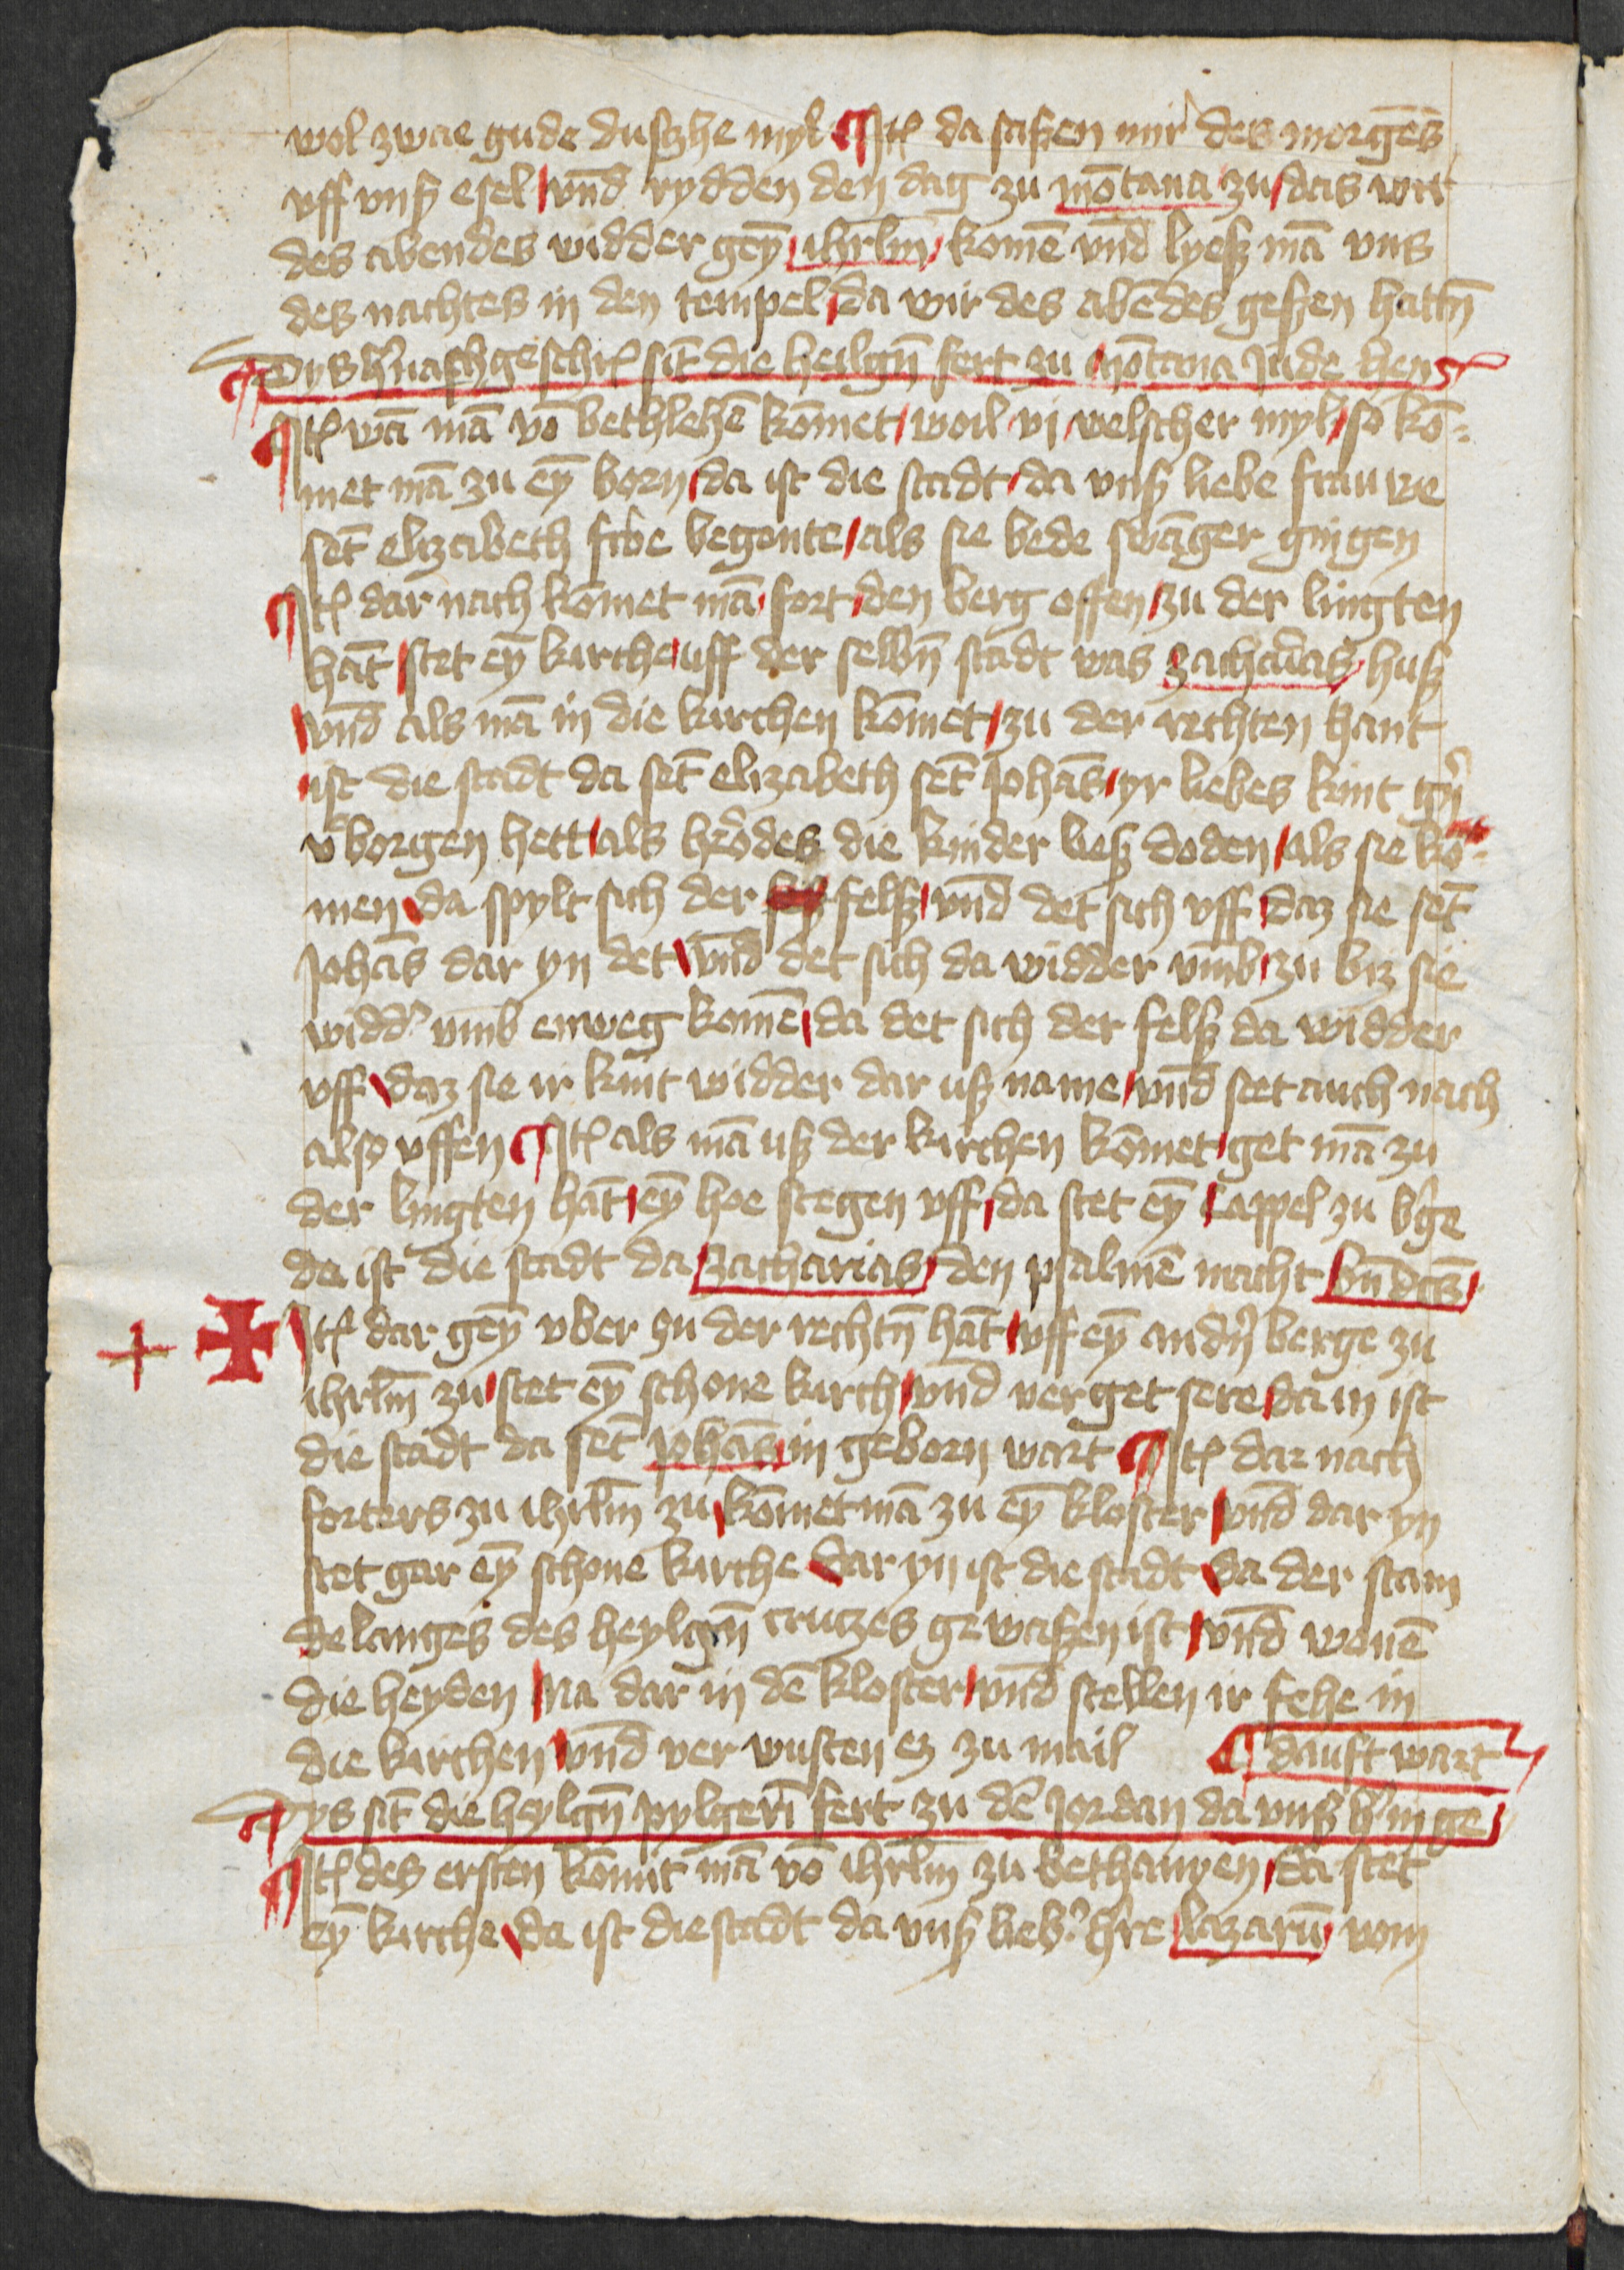 wol zwae gude duszhe myl ¶ Itē da saßen mir des morgēs
uff unß esel / vnd rydden den dag zu mōtana zu / das wir
des abendes widder geȳ ihrlm̄ komē vnd lyeß mā vns
des nachtes in den tempel / da wir des abēdes geßen hattn̄
¶ Dys h'nach geschrē sīt die heilgn̄ fert zu mōtana Jude
¶ Itē wā mā vō bethlehē kōmet / woil vj welscher myl / so kō=
met mā zu eȳ born / da ist die stadt / da vnß liebe frauwe
sēt elizabeth begonte / als sie bede swāger gingen
¶ Itē dar nach kōmet mā fort den berg offen / zu der lingten
hāt / stet eȳ kirche / uff der selbn̄ stadt was zacharias huß
vnd als mā in die kirchen kōmet / zu der rechten hant
ist die stadt da sēt elizabeth sēt Johās / yr liebes kint
v'borgen hett / als h'odes die kinder ließ doden / als sie kō=
men / da spylt sich der felß / vnd det sich vff / daz sie sēt
Johās dar yn det / vnd det sich da widder vmb zu biz sie
widd' vmb enweg komē / da det sich der felß da widder
vff / daz sie ir kint widder dar uß name / vnd stet auch nach
also uffen ¶ Itē als mā uß der kirchen kōmet / get mā zu
der lingten hāt / eȳ hoe stegen vff / da stet eȳ cappel zu b'ge
da ist die stadt da zacharias den psalmē macht bn̄dctz
Itē dar geȳ vber zu der rechtn̄ hāt / vff eȳ andn̄ berge zu
ihrlm̄ zu / stet eȳ schone kirch / vnd verget sere / da in ist
die stadt da sēt Johās in geborn wart ¶ Itē dar nach
forters zu ihrlm̄ zu / kōmet mā zu eȳ kloster / vnd dar yn
stet gar eȳ schone kirche / dar yn ist die stadt / da der stam
de langes des heylgn̄ crutzes gewaßen ist / vnd wonē
die heyden na dar in dē kloster / vnd stellen ir fehe in
die kirchen / vnd ver wusten ez zu mail ¶ dauft wart
¶ Dys sīt die heylgn̄ pylgerī fert zu dē Jordan da vnß h' in ge
¶ Itē des ersten kōmit mā vō ihrlm̄ zu bethanyen / da stet
eȳ kirche / da ist die stadt da vnß lieb' h're lazarū vom